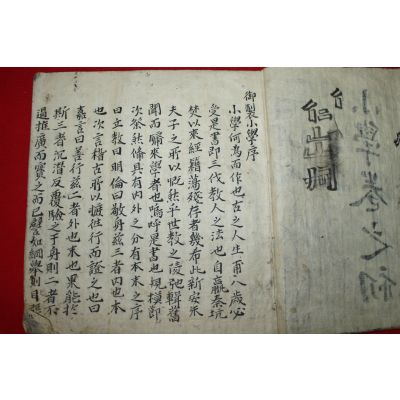 御製小學序
小學何爲而作也古之人生甫八歲必
受是書即三代教人之法也自嬴秦坑
焚以來經籍蕩殘存者幾希此新安朱
夫子之所以慨然乎世教之陵弛輯舊
聞而牖來學者也嗚呼是書也規模節
次粲然俻具有內外之分有本末之序
曰立教曰明倫曰敬身玆三者內也本
也次言稽古所以摭往行而證之也曰
嘉言曰善行玆二者外也末也果能於
斯三者沉潛反覆驗之于身則二者不
過推廣而實之而已譬如綱擧則目張